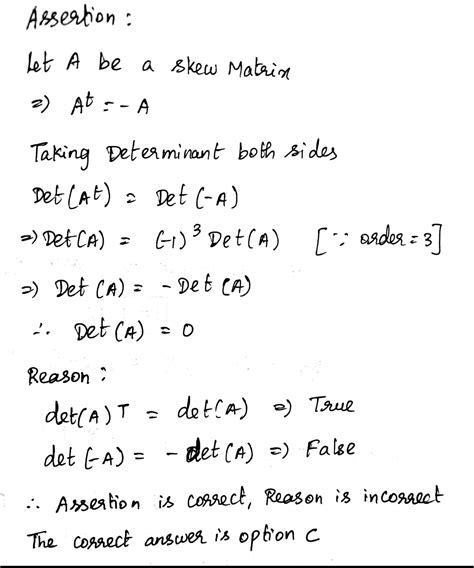 Assertion :
Let A be a skew Matrix
⇒ Aᵗ = - A
Taking Determinant both sides
Det(Aᵗ) = Det(-A)
⇒ Det(A) = (-1)³ Det(A) [∵ order = 3]
⇒ Det (A) = - Det (A)
∴ Det (A) = 0
Reason :
det(A)ᵀ = det(A) ⇒ True
det (-A) = - det (A) ⇒ False
∴ Assertion is correct, Reason is incorrect
The correct answer is option C